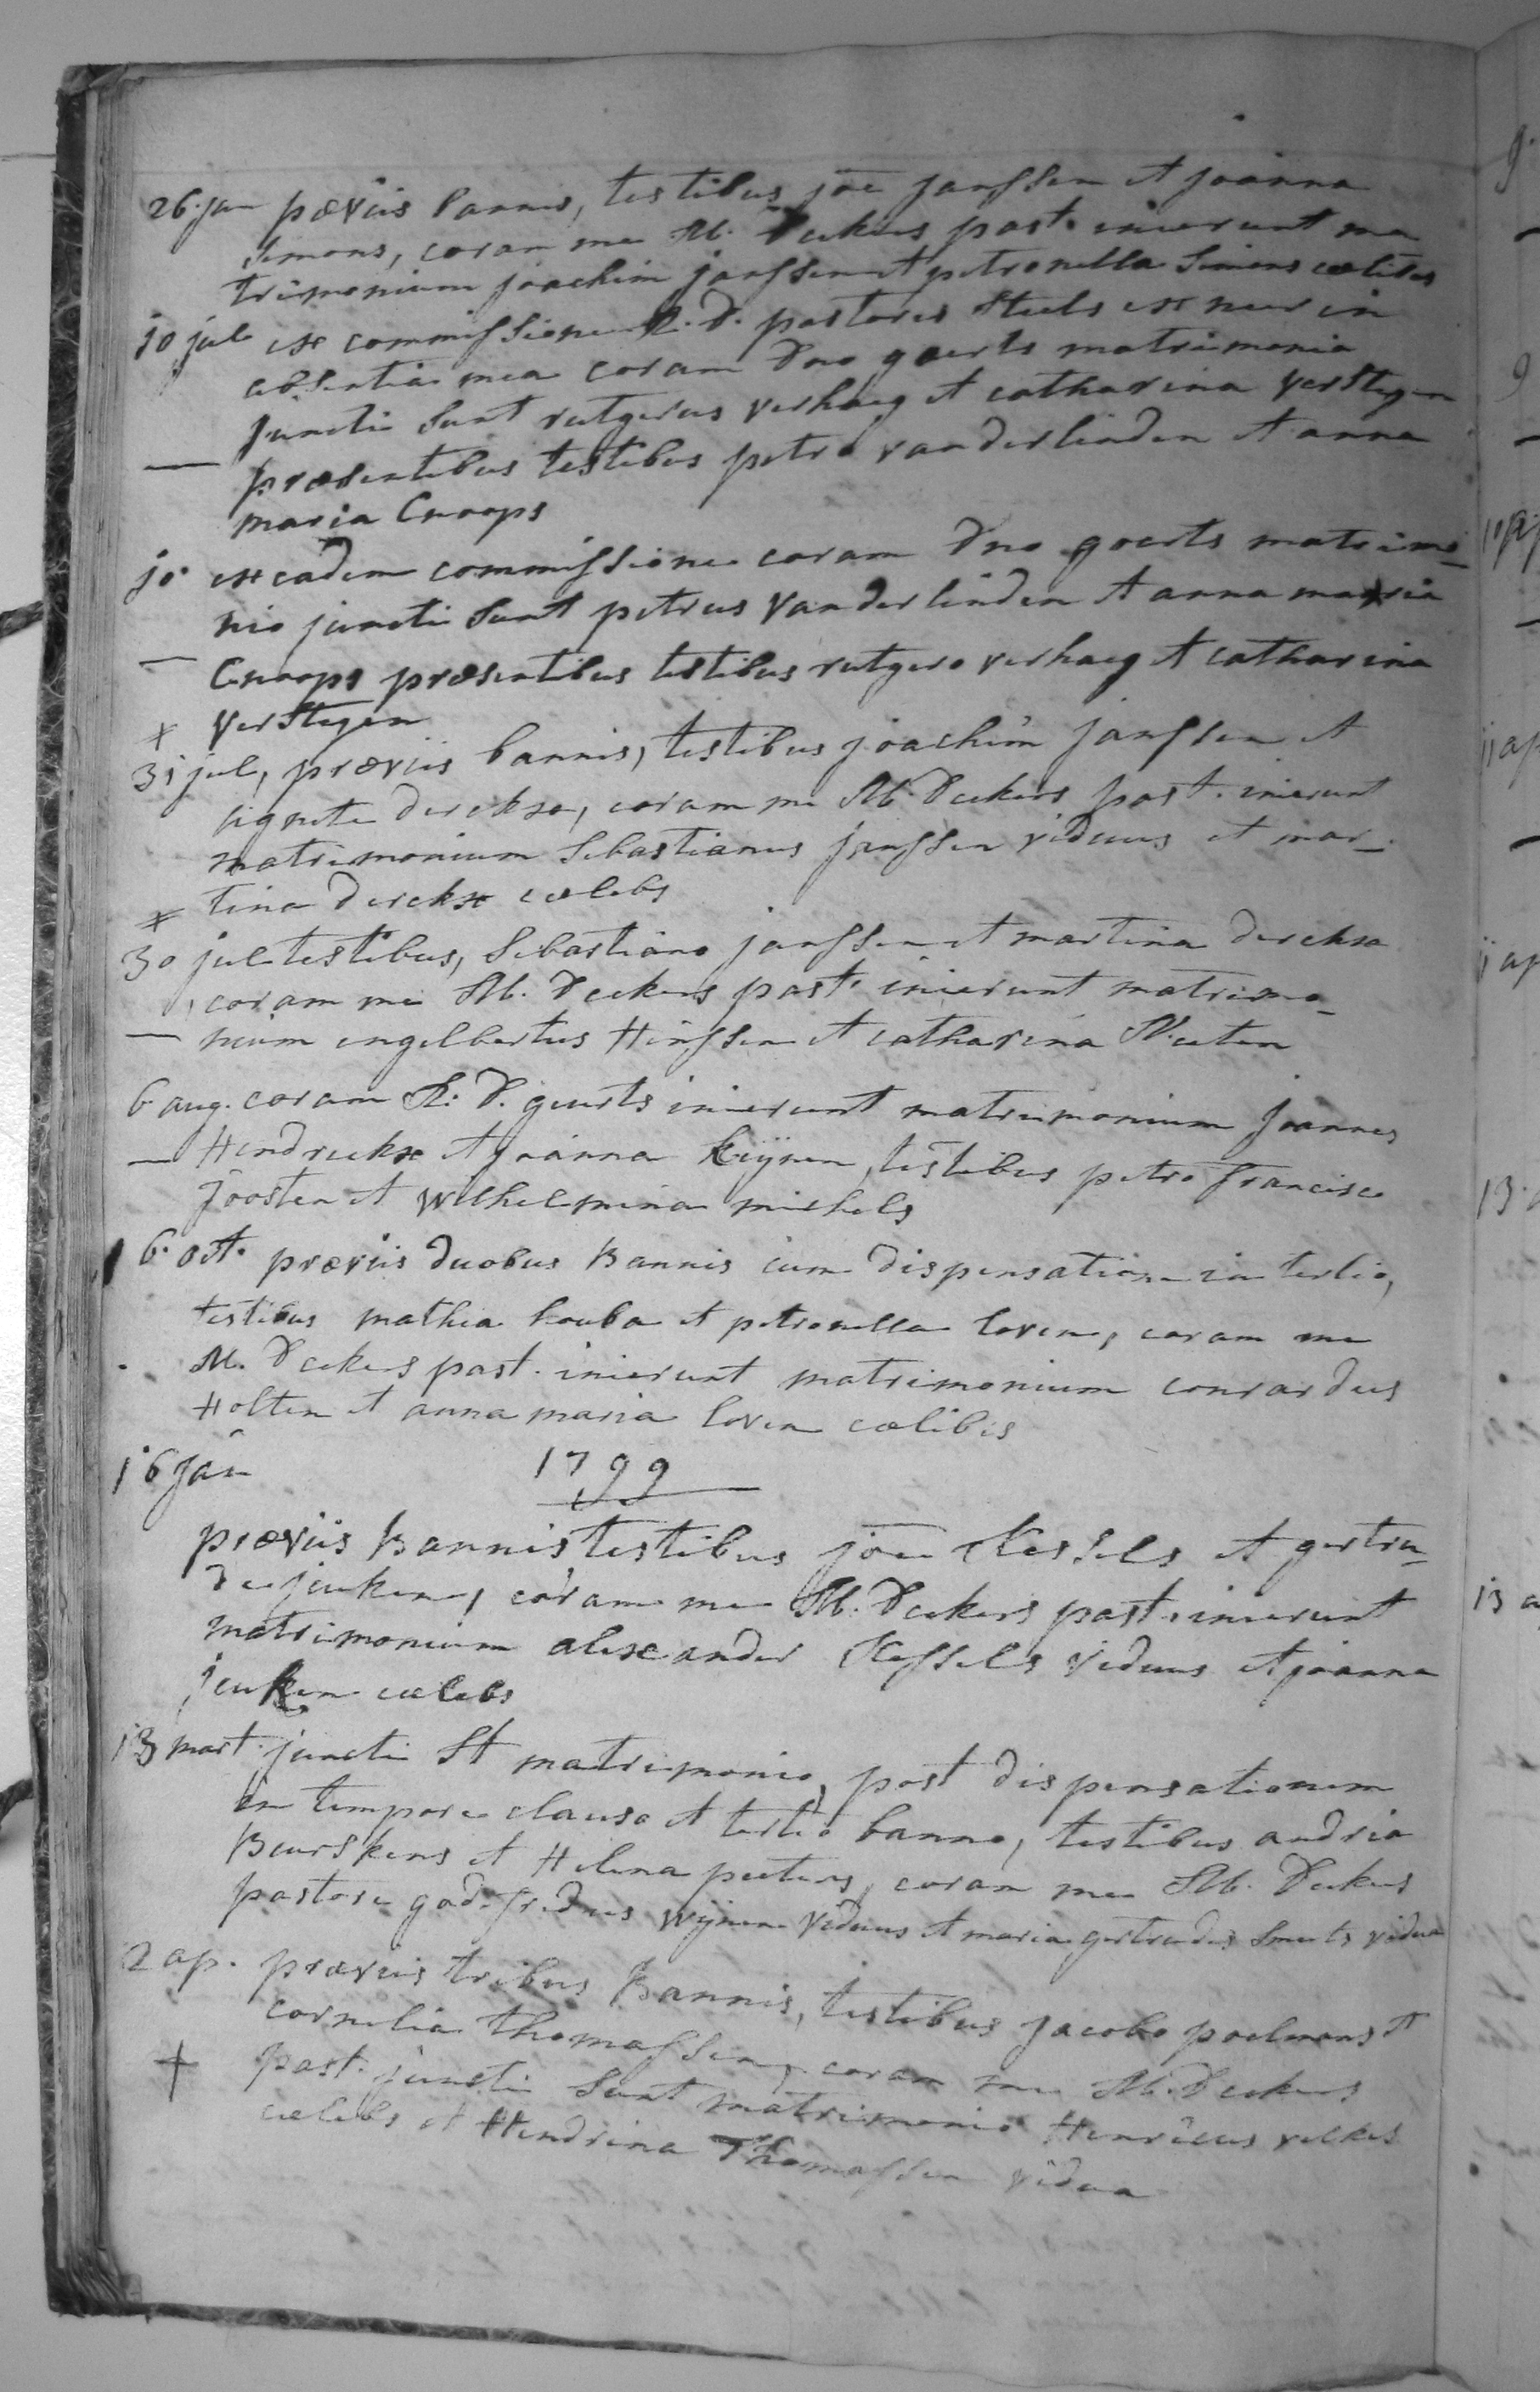 26. jan præviis bannis, testibus jōe janssen et joanna
Simons, coram me M. Deckers past. inierunt ma
trimonium joachim janssen et petronella Simons cœlibes
10 jul ex commissione R. D. pastoris Steels ex neer in
absentia mea coram Dno goerts matrimonio
juncti sunt rutgerus verhaeg et catharina verstegen
— præsentibus testibus petro vanderlinden et anna
maria Cnoops
10 ex eadem commissione coram Dno goerts matrimo-
nio juncti sunt petrus Vanderlinden et anna maria
— Cnoops præsentibus testibus rutgero verhaeg et catharina
x verstegen
31 jul, præviis bannis, testibus joachim janssen et
derckx, coram me M. Deckers past. inierunt
matrimonium Sebastianus janssen viduus et mar-
x tina derckx cœlebs
30 jul testibus, Sebastiano janssen et martina derckx
coram me M. Deckers past. inierunt matrimo-
— nium engelbertus Hinssen et catharina
6 aug. coram R: D. geurts inierunt matrimonium joannes
— Hendrickx et joanna testibus petro francisco
joosten et Wilhelmina michels
6. oct. præviis duobus Bannis cum dispensatione in tertio,
testibus mathia houba et petronella loven, coram me
M. Deckers past. inierunt matrimonium conrardus
Holten et anna maria loven cœlibes
16 jan 1799
præviis Bannis testibus jōe Kessels et gertru-
de jeuken, coram me M. Deckers past. inierunt
matrimonium alexander Kessels viduus et joanna
jeuken cœlebs
13 mart. juncti St matrimonio, post dispensationem
in tempore clauso et tertio banno, testibus andrea
Beurskens et Helena peeters, coram me M. Deckers
pastore godefridus wijnen viduus et maria gertrudis Smeets vidua
2 ap. præviis tribus Bannis, testibus jacobo poelmans et
cornelia thomassen, coram me M. Deckers
+ past. juncti sunt matrimonio Henricus
cœlebs et Hendrina Thomassen vidua